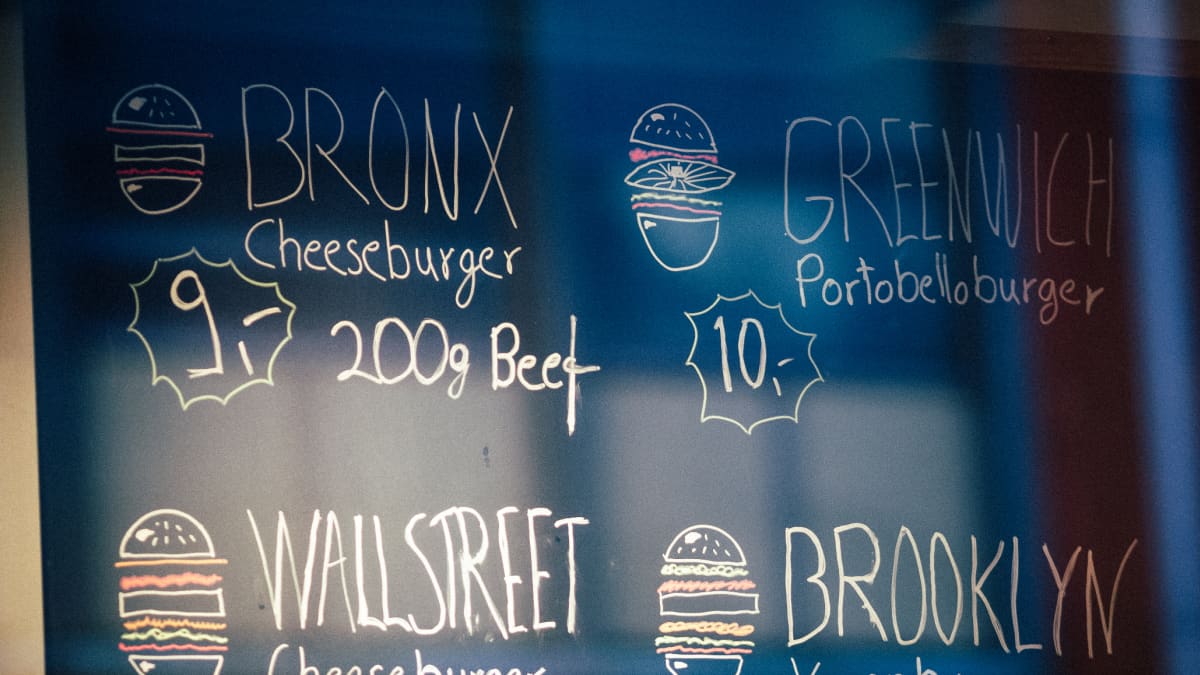 BRONX
Cheeseburger
9,-
200g Beef
GREENWICH
Portobelloburger
10,-
WALLSTREET
Cheeseburger
BROOKLYN